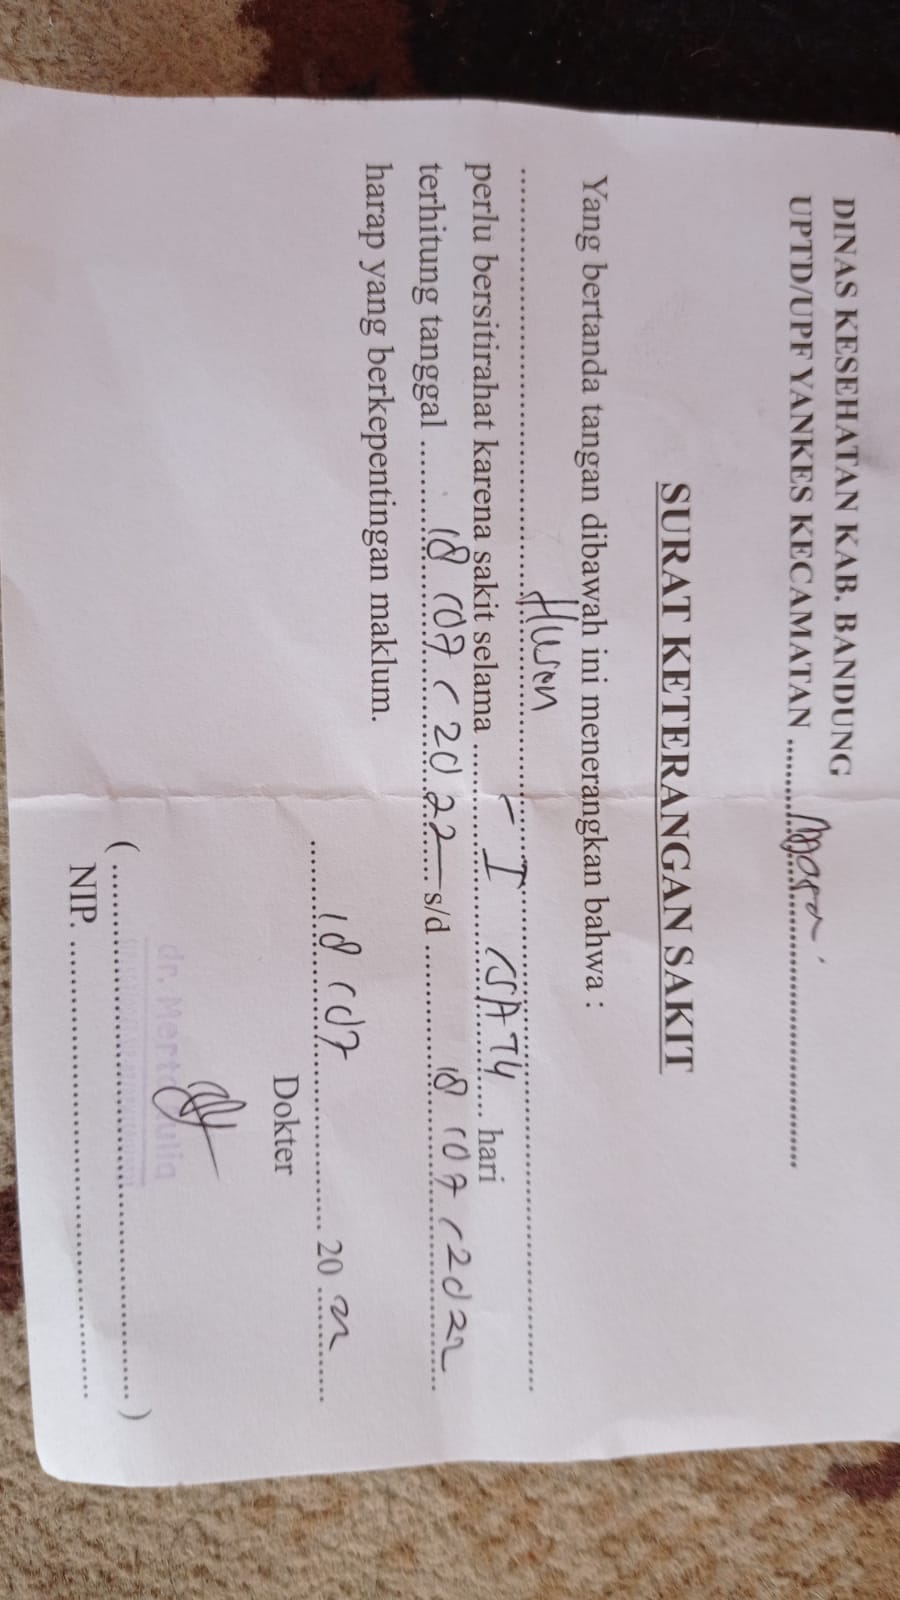 DINAS KESEHATAN KAB. BANDUNG
UPTD/UPF YANKES KECAMATAN ....................
SURAT KETERANGAN SAKIT
Yang bertanda tangan dibawah ini menerangkan bahwa :
....................
perlu bersitirahat karena sakit selama .......... I (SATU) .......... hari
terhitung tanggal .......... 18 / 07 / 2022 .......... s/d .......... 18 / 07 / 2022
harap yang berkepentingan maklum.
.......... 18 / 07 .......... 20 22
Dokter
dr.
( .................... )
NIP. ....................